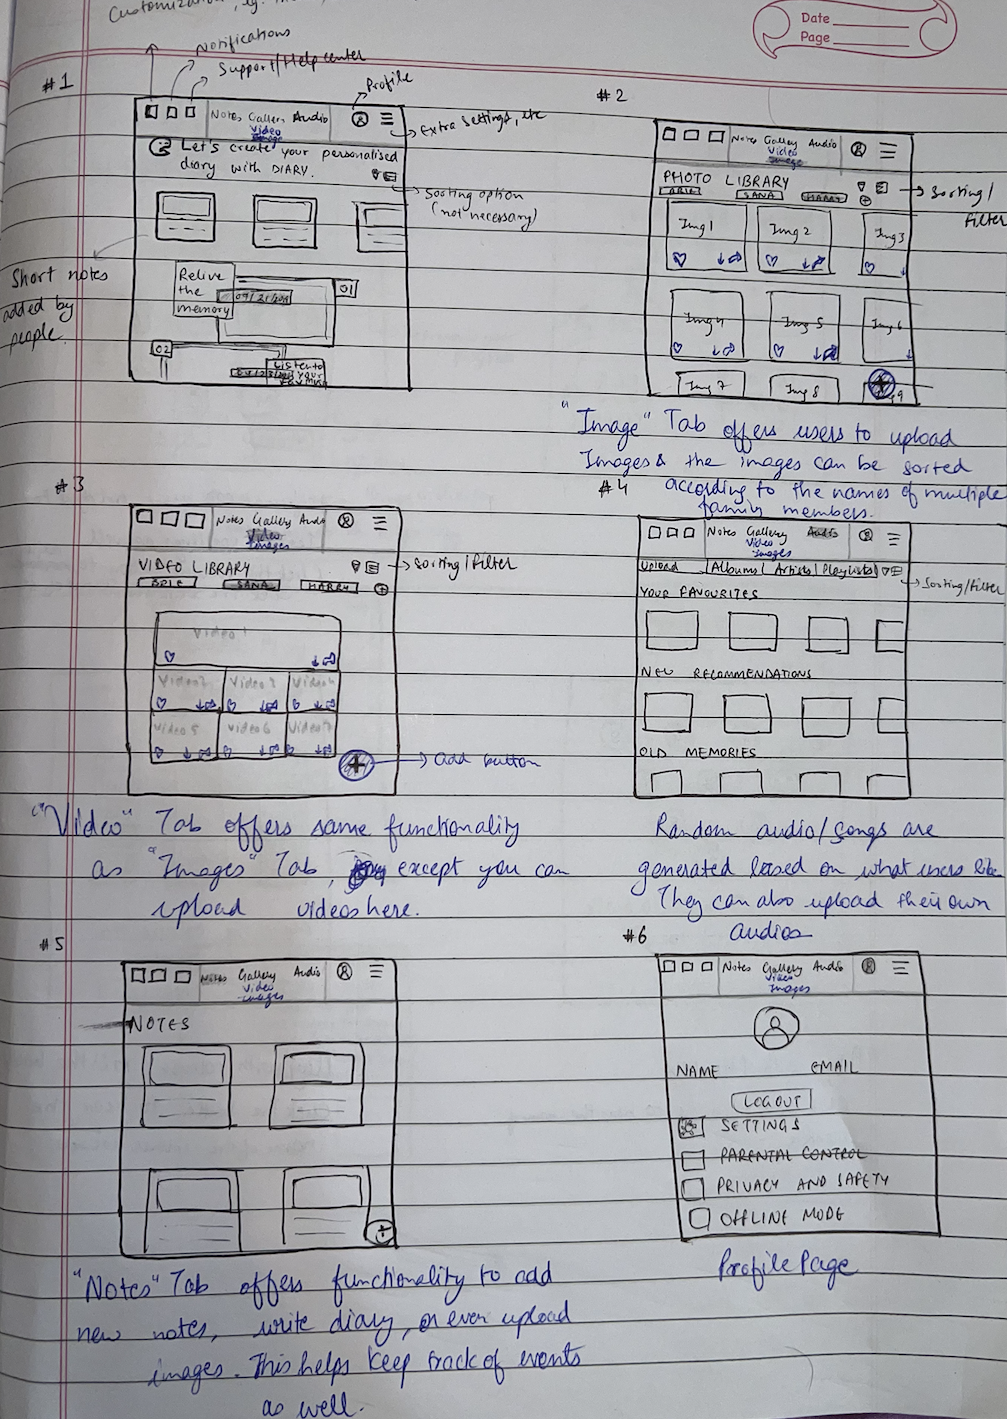 Customization, eg.
Date
Page
Notifications
Support/Help center
Profile
#1
Notes Gallery Audio
Video
Image
Extra settings, etc
Let's create your personalised
diary with DIARY.
Sorting option
(not necessary)
Short notes
added by
people.
Relive
the
memory
01
02
Listen to
your
#2
Notes Gallery Audio
Video
Image
PHOTO LIBRARY
ARIE SANA HARRY
Sorting/
filter
Img 1 Img 2 Img 3
Img 4 Img 5 Img 6
Img 7 Img 8 Img 9
"Image" Tab offers users to upload
Images & the images can be sorted
according to the names of multiple
family members.
#3
Notes Gallery Audio
Video
Images
VIDEO LIBRARY
ARIE SANA HARRY
Sorting/Filter
Video 1
Video 2 Video 3 Video 4
Video 5 Video 6 Video 7
add button
"Video" Tab offers same functionality
as "Images" Tab, except you can
upload videos here.
#4
Notes Gallery Audio
Video
Images
Upload Albums Artists Playlists
Sorting/filter
YOUR FAVOURITES
NEW RECOMMENDATIONS
OLD MEMORIES
Random audio/songs are
generated based on what users like
They can also upload their own
audios
#5
Notes Gallery Audio
Video
Images
NOTES
"Notes" Tab offers functionality to add
new notes, write diary, or even upload
images. This helps keep track of events
as well.
#6
Notes Gallery Audio
Video
Images
NAME EMAIL
LOGOUT
SETTINGS
PARENTAL CONTROL
PRIVACY AND SAFETY
OFFLINE MODE
Profile Page